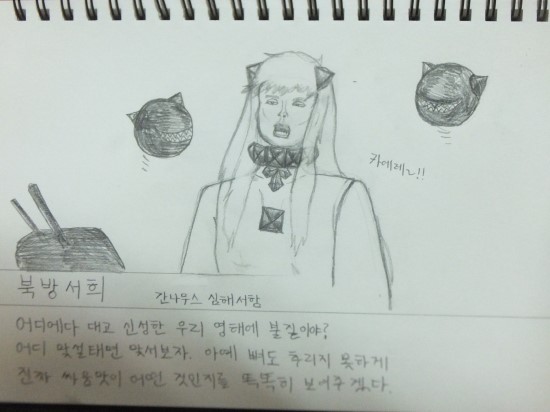 카에레~!!
북방서희
간나우스 심해서함
어디에다 대고 신성한 우리 영태에 불질이야?
어디 맞설테면 맞서보자. 아예 뼈도 추리지 못하게
진짜 싸움맛이 어떤 것인지를 똑똑히 보여주겠다.